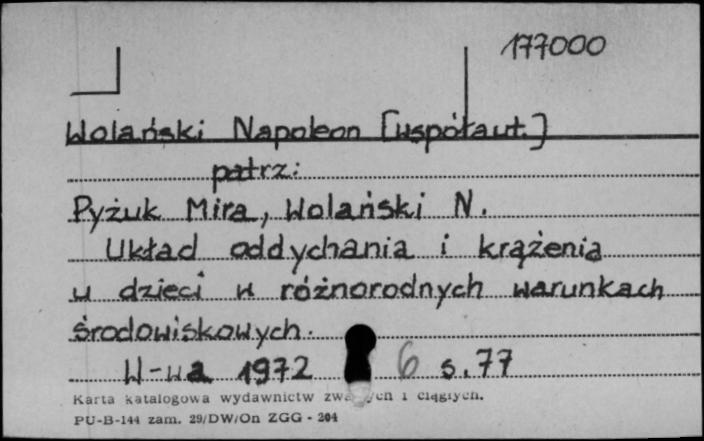 177000
Wolański Napoleon [współaut.]
patrz:
Pyżuk Mira, Wolański N.
Układ oddychania i krążenia
u dzieci w różnorodnych warunkach
środowiskowych.
W-wa 1972 6 s. 77
Karta katalogowa wydawnictw i ciągłych.
PU-B-144 zam. 29/DW/On ZGG - 204